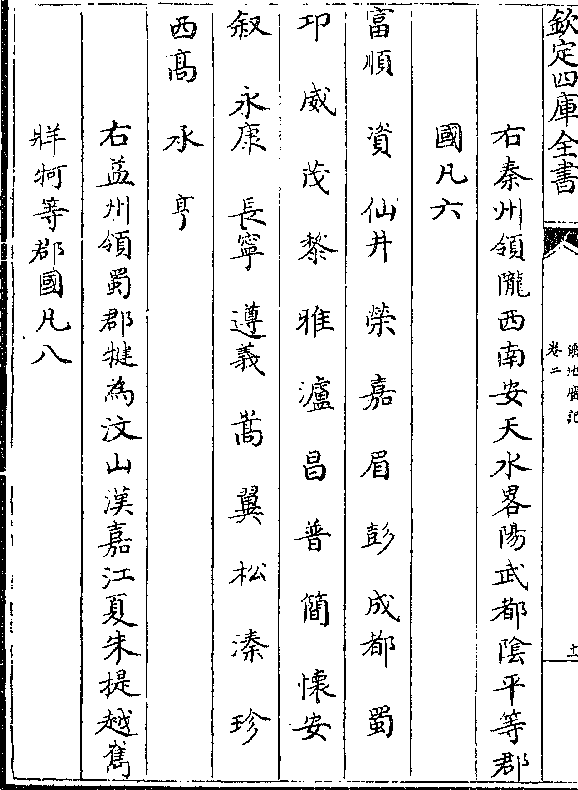 欽定四庫全書
卷二
右秦州領隴西南安天水畧陽武都陰平等郡
國凡六
富順 資 仙井 榮 嘉 眉 彭 成都 蜀
卭 威 茂 黎 雅 瀘 昌 普 簡 懷安
叙 永康 長寧 遵義 嵩 翼 松 溱 珍
西高 水 亨
右益州領蜀郡犍為汶山漢嘉江夏朱提越嶲
牂牁等郡國凡八